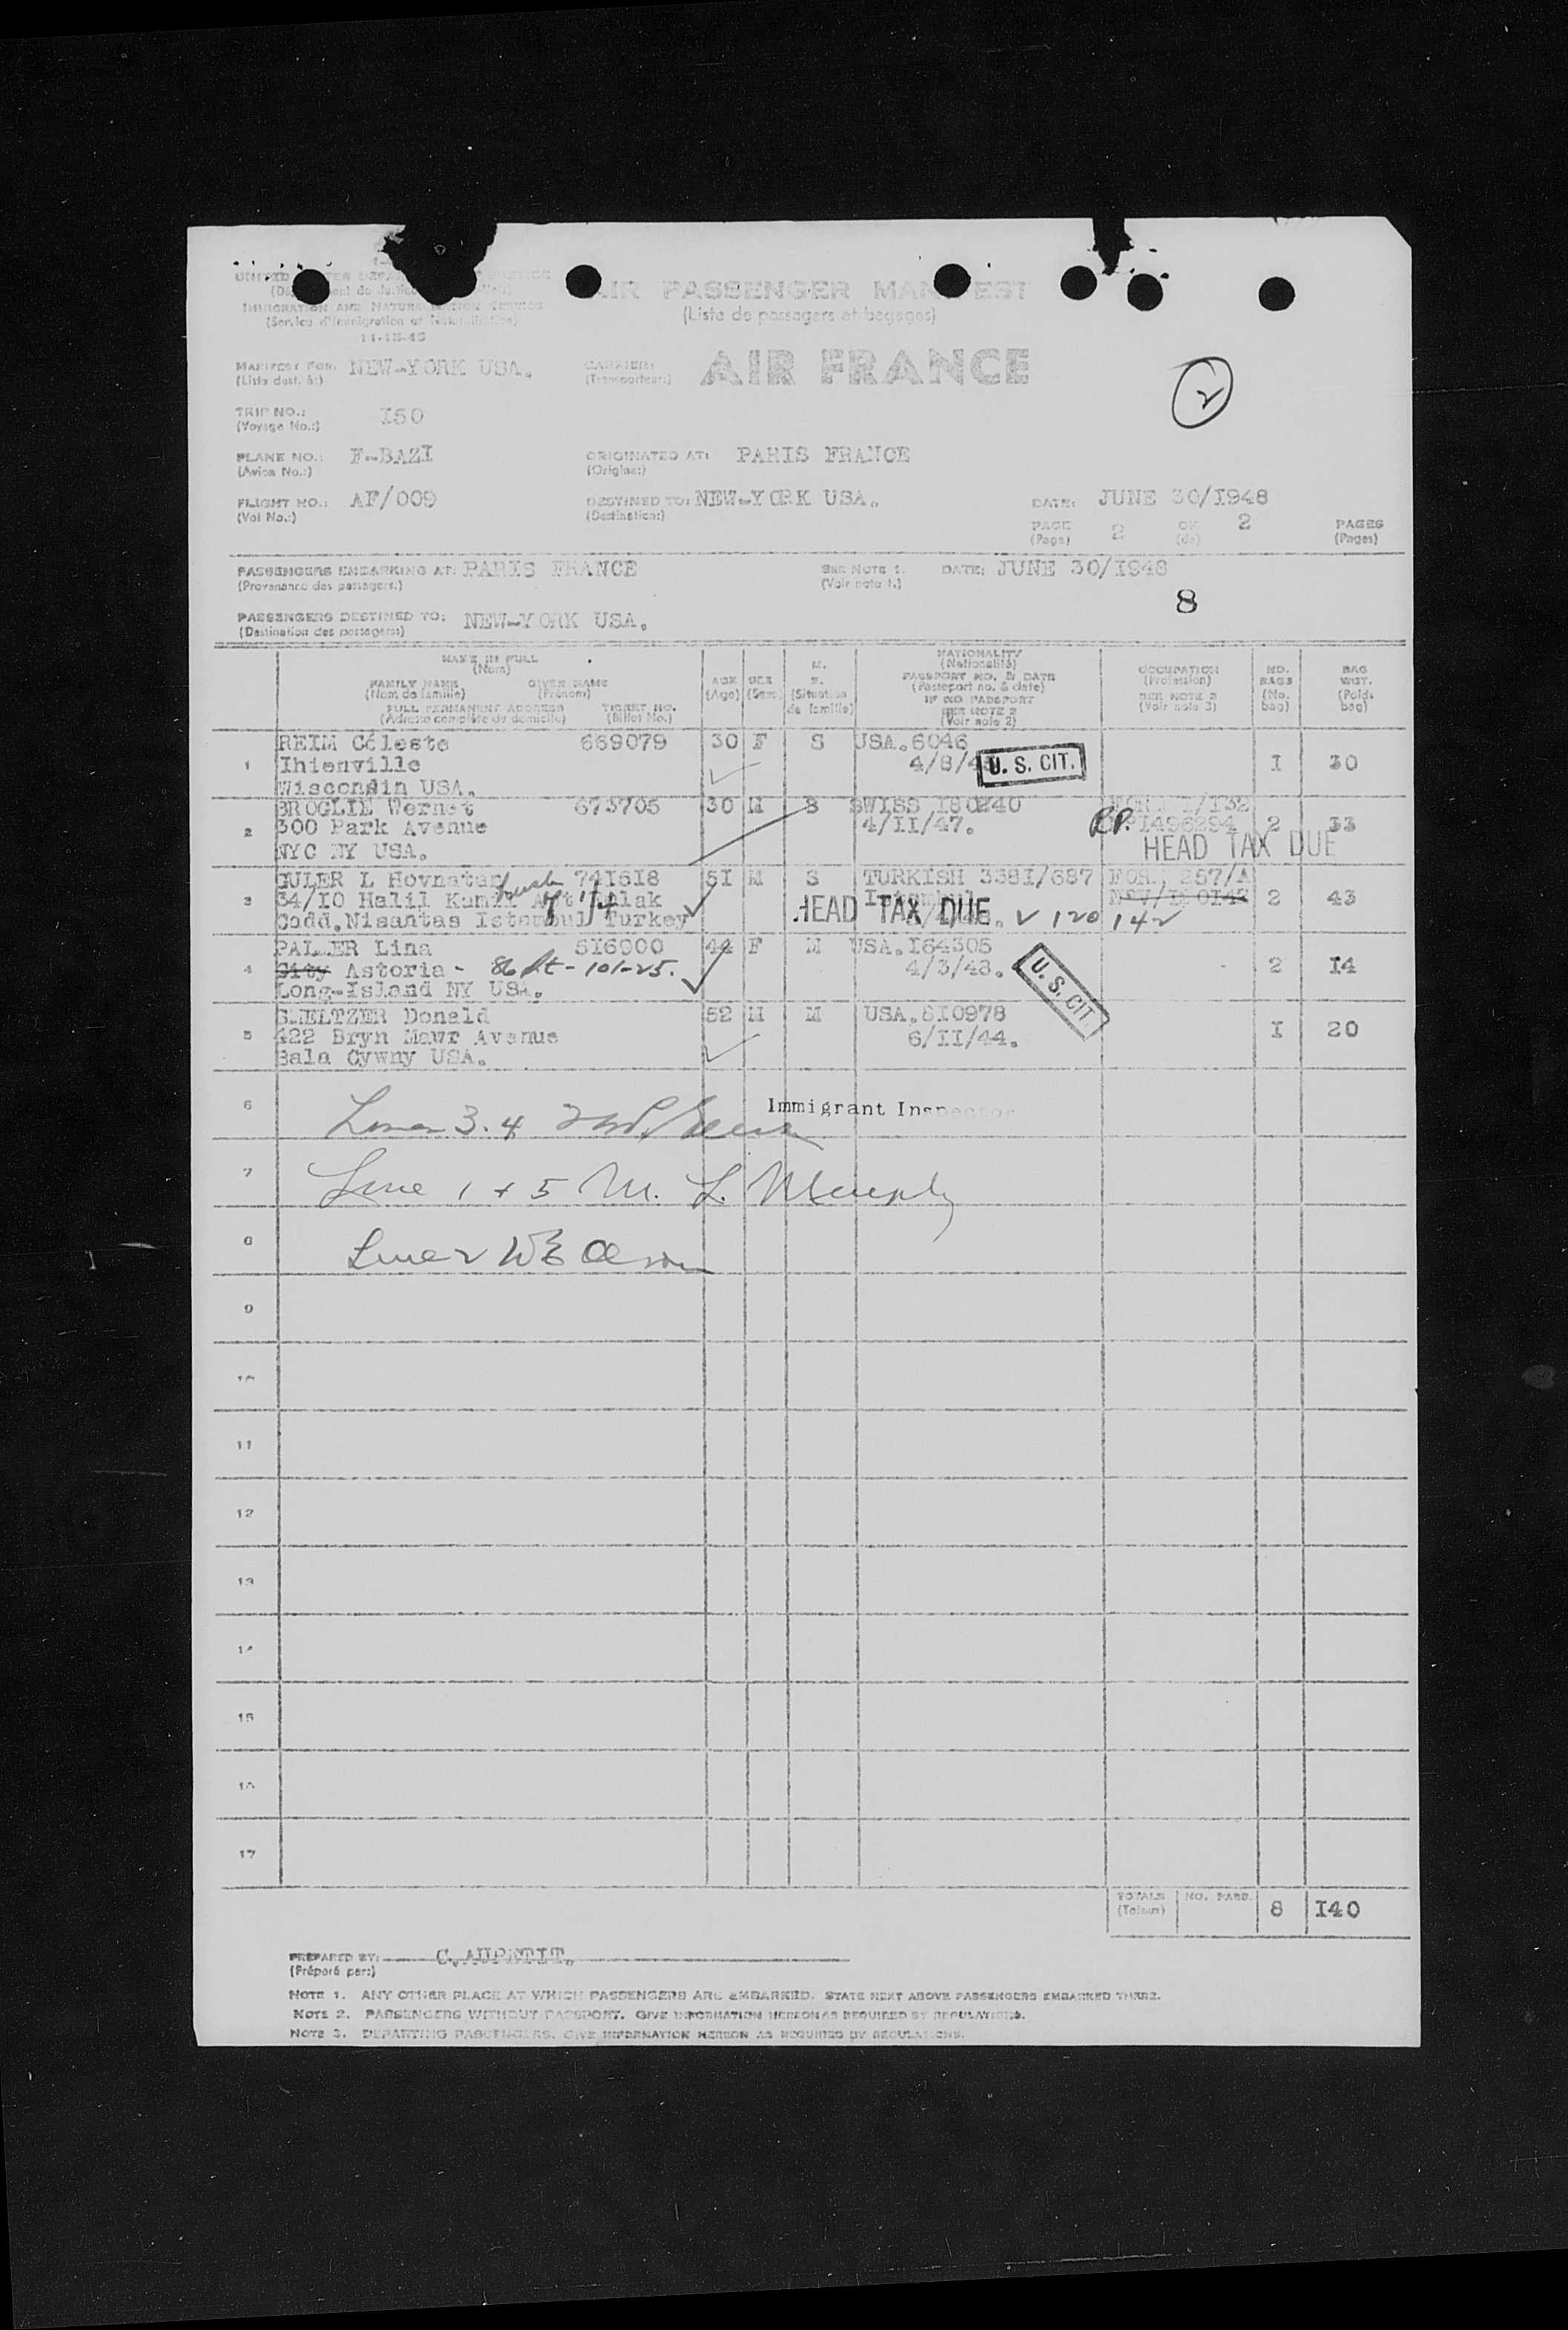 AIR PASSENGER MANIFEST
(Liste de passagers et bagages)
IMMIGRATION AND NATURALIZATION SERVICE
(Service d'Immigration et Naturalisation)
11-15-45
MANIFEST FOR: NEW-YORK USA.
(Liste dest. à:)
CARRIER: AIR FRANCE
(Transporteur:)
2
TRIP NO.: I50
(Voyage No.:)
PLANE NO.: F-BAZI
(Avion No.:)
ORIGINATED AT: PARIS FRANCE
(Origine:)
FLIGHT NO.: AF/009
(Vol No.:)
DESTINED TO: NEW-YORK USA.
(Destination:)
DATE: JUNE 30/I948
PAGE 2 OF 2 PAGES
(Page) (de) (Pages)
PASSENGERS EMBARKING AT: PARIS FRANCE
(Provenance des passagers.)
SEE NOTE 1.
(Voir note 1.)
DATE: JUNE 30/I948
8
PASSENGERS DESTINED TO: NEW-YORK USA.
(Destination des passagers:)
NAME IN FULL
(Nom)
FAMILY NAME GIVEN NAME
(Nom de famille) (Prénom)
FULL PERMANENT ADDRESS TICKET NO.
(Adresse complète du domicile) (Billet No.)
AGE
(Age)
SEX
(Sexe)
M.
S.
(Situation
de famille)
NATIONALITY
(Nationalité)
PASSPORT NO. & DATE
(Passeport no. & date)
IF NO PASSPORT
SEE NOTE 2
(Voir note 2)
OCCUPATION
(Profession)
SEE NOTE 3
(Voir note 3)
NO.
BAGS
(No.
bag)
BAG
WGT.
(Poids
bag)
1 REIM Céleste 669079 30 F S USA.6046 I 30
Thienville 4/8/4 U. S. CIT.
Wisconsin USA.
2 BROGLIE Wernet 673705 30 M S SWISS I80240 2 33
300 Park Avenue 4/II/47. RP. I496294
NYC NY USA. HEAD TAX DUE
3 GULER L Hovnatan 74I6I8 5I M S TURKISH 338I/687 FOR. 257/A 2 43
34/I0 Halil Kamil Apt
HEAD TAX DUE V 120 142
Cadd.Nisantas Istanbul Turkey
4 PALMER Lina 5I6900 44 F M USA.I64305 2 I4
City Astoria - 86 St - 101-25. 4/3/48. U. S. CIT.
Long-Island NY USA.
5 SMELTZER Donald 52 M M USA.6I0978 I 20
422 Bryn Mawr Avenue 6/II/44.
Bala Cywny USA.
6 Lines 3. 4 Immigrant Inspector
7 Line 1 + 5 M. L. Murphy
8 Line 2 WE Olson
9
10
11
12
13
14
15
16
17
TOTALS NO. PASS. 8 I40
(Totaux)
PREPARED BY: C.AUPETIT.
(Préparé par:)
NOTE 1. ANY OTHER PLACE AT WHICH PASSENGERS ARE EMBARKED. STATE NEXT ABOVE PASSENGERS EMBARKED THERE.
NOTE 2. PASSENGERS WITHOUT PASSPORT. GIVE INFORMATION HEREON AS REQUIRED BY REGULATIONS.
NOTE 3. DEPARTING PASSENGERS. GIVE INFORMATION HEREON AS REQUIRED BY REGULATIONS.